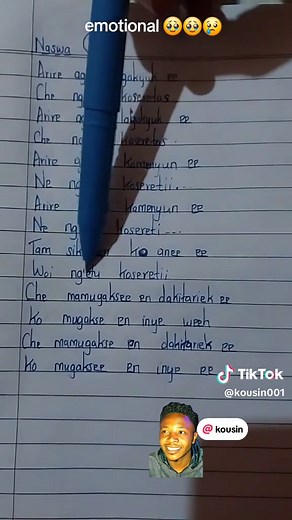 emotional 🥹🥹😢
Naswa
Arire ee
Che koseretos
Arire ee
Che koseretos.
Arire kamenyun ee
Ne koseretii...
Arire kamenyun ee
Ne kosereti...
Tam ko anee ee
Woi ngleu koseretii
Che mamugaksee en dakitariek ee
Ko mugakse en inye weeh
Che mamugaksee en dakitariek ee
Ko mugaksee en inye ee
TikTok
@kousin001
@ kousin